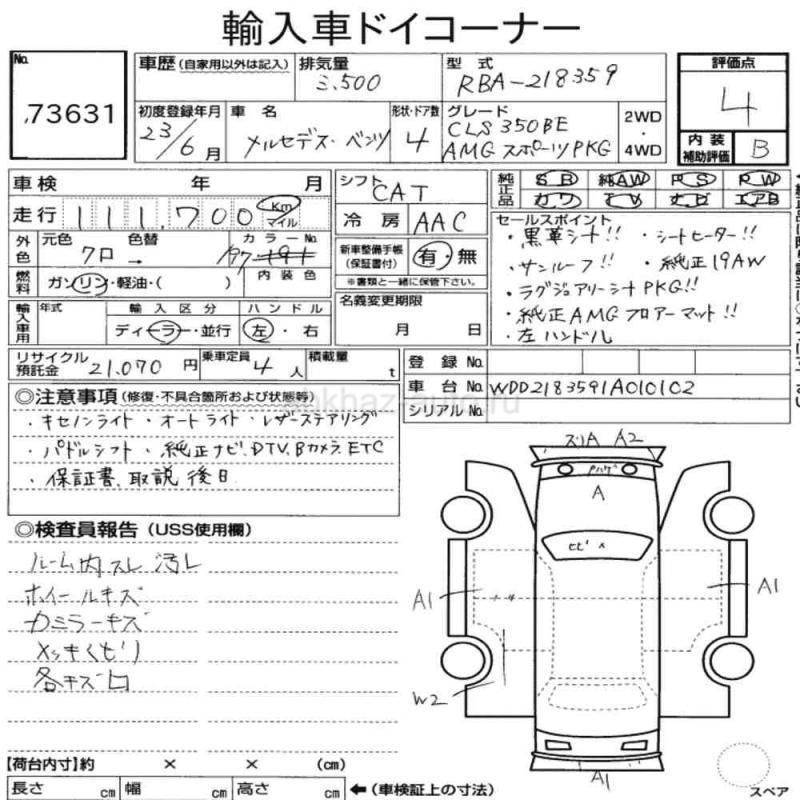 輸入車ドイコーナー
No. 73631
車歴 (自家用以外は記入) 排気量 3,500 型式 RBA-218359 評価点 4
初度登録年月 23/6月 車名 メルセデス・ベンツ 形状・ドア数 4 グレード CLS350BE AMGスポーツPKG 2WD・4WD 内装補助評価 B
車検 年 月 シフト CAT 純正品 SR 純AW PS PW
カワ TV ナビ エアB
走行 111,700 Km マイル 冷房 AAC セールスポイント
外色 元色 クロ 色替 → カラーNo. 197 内装色 新車整備手帳(保証書付) 有・無
※書類と一緒に保管下さい。
・黒革シート!! ・シートヒーター!!
・サンルーフ!! ・純正19AW
・ラグジュアリーシートPKG!!
・純正AMGフロアーマット!!
・左ハンドル
燃料 ガソリン・軽油・( ) 名義変更期限 月 日
輸入車用 年式 輸入区分 ディーラー・並行 ハンドル 左・右
リサイクル預託金 21,070円 乗車定員 4人 積載量 t 登録No.
車台No. WDD2183591A010102
シリアルNo.
◎注意事項 (修復・不具合箇所および状態等)
・キセノンライト ・オートライト ・レザーステアリング
・パドルシフト ・純正ナビ.DTV.Bカメラ.ETC
・保証書、取説 後日
abkhaz-auto.ru
◎検査員報告 (USS使用欄)
ルーム内スレ 汚レ
ホイールキズ
カミラーキズ
メッキくもり
各キズ凹
ズリA A2
A
ヒビ
A1
A1
W2
A1
スペア
【荷台内寸】約 × × (cm)
長さ cm 幅 cm 高さ cm ←(車検証上の寸法)